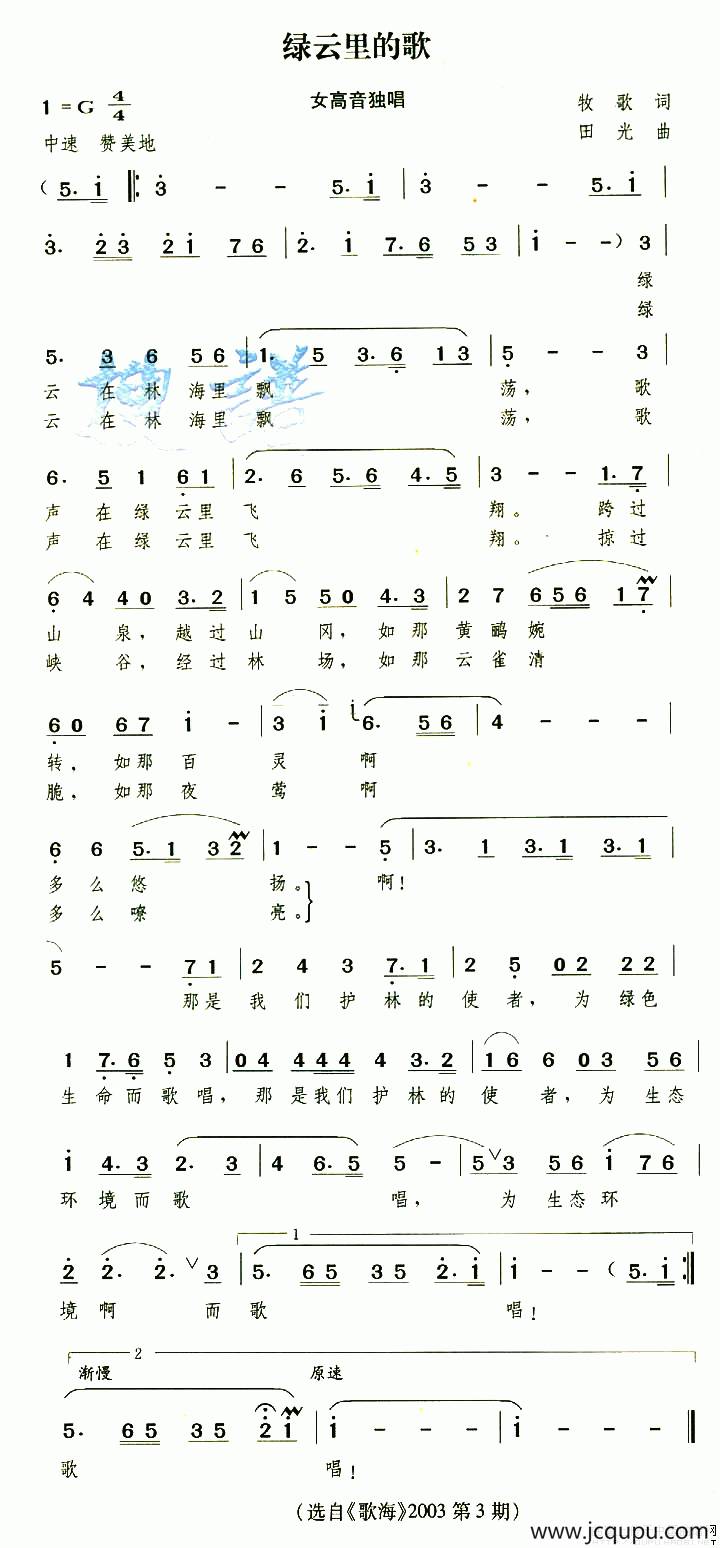 绿云里的歌
女高音独唱
1 = G 4/4
牧 歌 词
中速 赞美地
田 光 曲
( 5. i ‖: 3 - - 5. i | 3 - - 5. i |
3. 2 3 2 i 7 6 | 2. i 7. 6 5 3 | i - - ) 3
绿
绿
5. 3 6 5 6 | 1. 5 3. 6 1 3 | 5 - - 3
云 在 林 海里飘 荡, 歌
云 在 林 海里飘 荡, 歌
6. 5 1 6 1 | 2. 6 5. 6 4. 5 | 3 - - 1. 7 |
声 在 绿 云里 飞 翔。 跨过
声 在 绿 云里 飞 翔。 掠过
6 4 4 0 3. 2 | 1 5 5 0 4. 3 | 2 7 6 5 6 1 7 |
山 泉, 越过 山 冈, 如那 黄 鹂 婉
峡 谷, 经过 林 场, 如那 云 雀 清
6 0 6 7 i - | 3 i i 6. 5 6 | 4 - - - |
转, 如那 百 灵 啊
脆, 如那 夜 莺 啊
6 6 5. 1 3 2 | 1 - - 5 | 3. 1 3. 1 3. 1 |
多 么 悠 扬。 啊!
多 么 嘹 亮。
5 - - 7 1 | 2 4 3 7. 1 | 2 5 0 2 2 2 |
那是 我 们 护 林的 使 者, 为 绿色
1 7. 6 5 3 | 0 4 4 4 4 4 3. 2 | 1 6 6 0 3 5 6 |
生 命而 歌 唱, 那 是我们 护 林的 使 者, 为 生态
i 4. 3 2. 3 | 4 6. 5 5 - | 5 ∨ 3 5 6 i 7 6 |
环 境而 歌 唱, 为 生态 环
1
2 2. 2. ∨ 3 | 5. 6 5 3 5 2. i | i - - ( 5. i :‖
境 啊 而 歌 唱!
2
渐慢 原速
5. 6 5 3 5 2 i | i - - - | i - - - ‖
歌 唱!
(选自《歌海》2003 第 3 期)
www.jcqupu.com